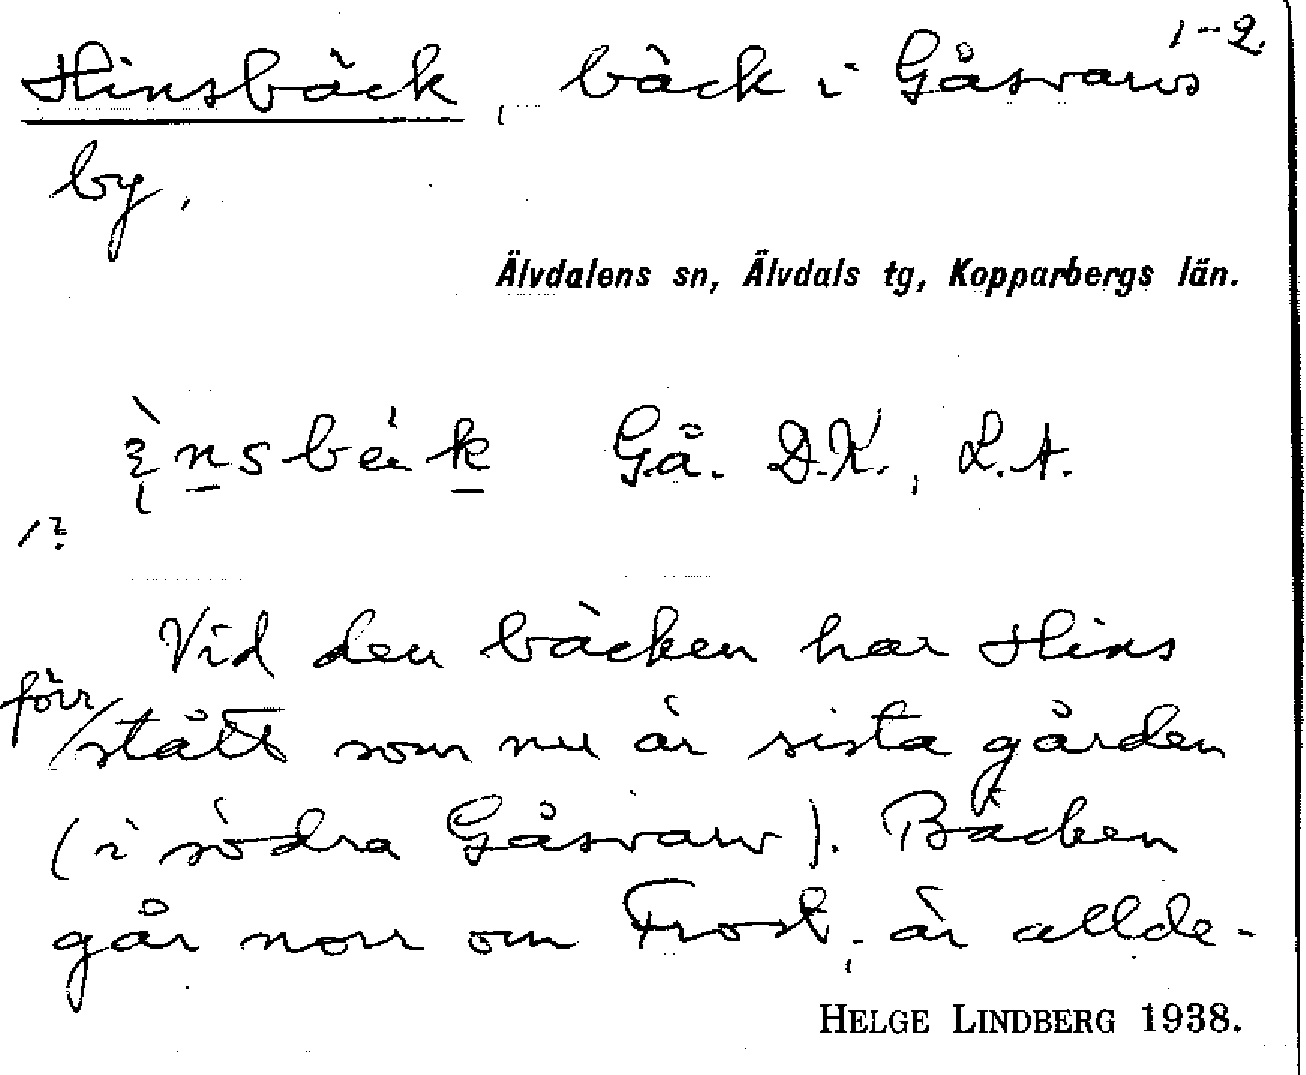 1-2
Hinsbäck, bäck i Gåsvarvs
by.
Älvdalens sn, Älvdals tg, Kopparbergs län.
Gå. D.K., L.A.
1?
Vid den bäcken har Hins
förr
/stått som nu är sista gården
(i södra Gåsvarv). Bäcken
går norr om Frost, är allde-
HELGE LINDBERG 1938.